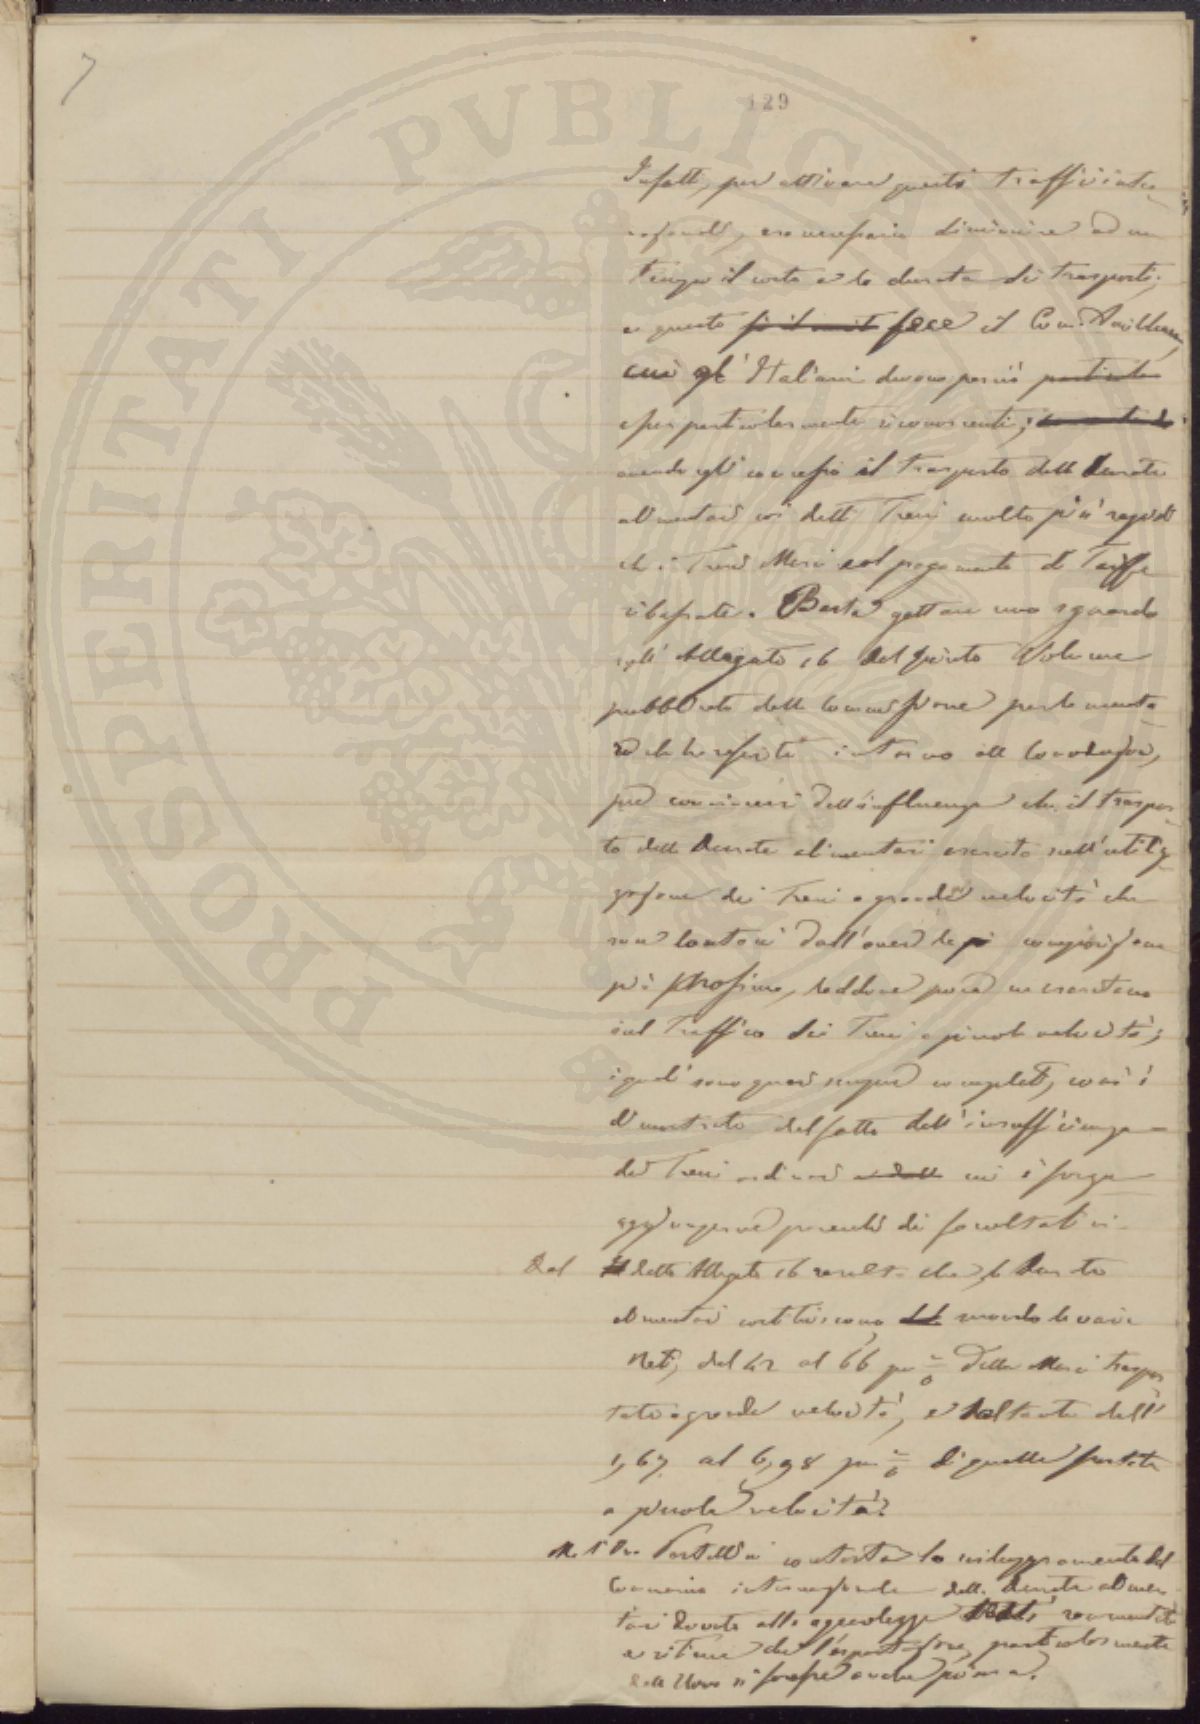 7
129
PROSPERITATI PVBLICAE
Infatti, per attivare questi traffici inter
nazionali, era necessario diminuire ad un
tempo il costo e la durata dei trasporti;
e questo fece il Com. Amilhau,
cui gl'Italiani devono perciò
esser particolarmente riconoscenti;
avendo egli concesso il trasporto delle derrate
alimentari coi detti Treni molto più rapidi
che i Treni Merci col pagamento di Tariffe
ribassate. Basta gettare uno sguardo
all'Allegato 16 del quinto Volume
pubblicato dalla Commissione parlamenta
re che ha riferito intorno alle Convenzioni,
per convincersi dell'influenza che il traspor
to delle derrate alimentari esercita nell'utiliz
zazione dei Treni a grande velocità che
son lontani dall'aver la composizione
più prossima, laddove poca ne esercitano
sul traffico dei Treni a piccola velocità;
i quali sono quasi sempre completi, come è
dimostrato dal fatto dell'insufficienza
dei Treni ordinari cui è forza
aggiungerne parecchi di facoltativi.
Dal detto Allegato 16 risulta che, le derrate
alimentari costituiscono secondo le varie
Reti, dal 42 al 66 per % delle Merci traspor
tate a grande velocità, e soltanto dall'
1,67 al 6,98 per % di quelle portate
a piccola velocità?
contesta lo sviluppamento del
Commercio internazionale delle derrate alimen
tari dovuto alle agevolezze
e ritiene che l'esportazione, particolarmente
delle Uova si facesse anche prima.